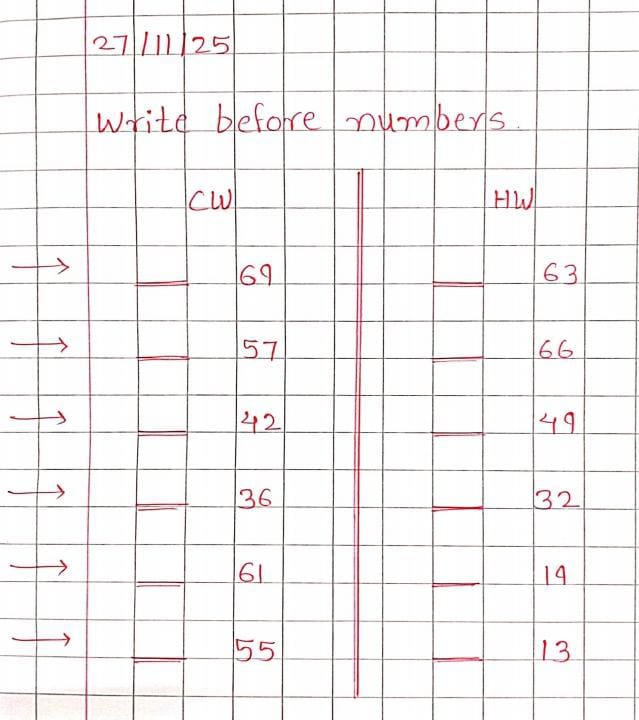 27/11/25
Write before numbers.
CW HW
→ __ 69 __ 63
→ __ 57 __ 66
→ __ 42 __ 49
→ __ 36 __ 32
→ __ 61 __ 19
→ __ 55 __ 13